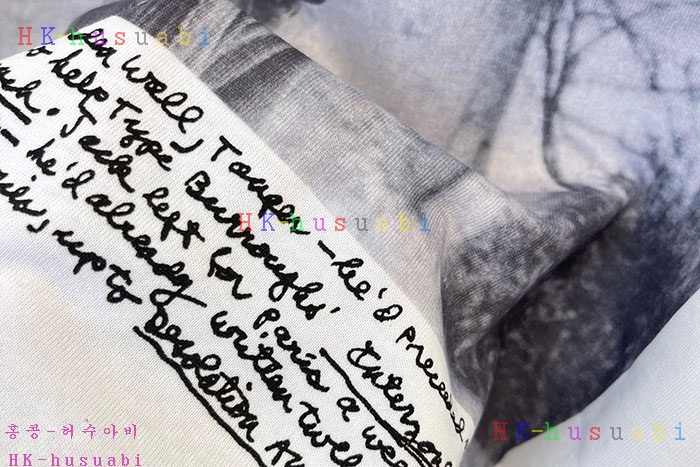 HK-husuabi
wall, Tanger – he'd preceded
help type Burroughs' Interzone
Jack left for Paris a week
– he'd already written twelve
up to Desolation
HK-husuabi
HK-husuabi
홍콩-허수아비
HK-husuabi